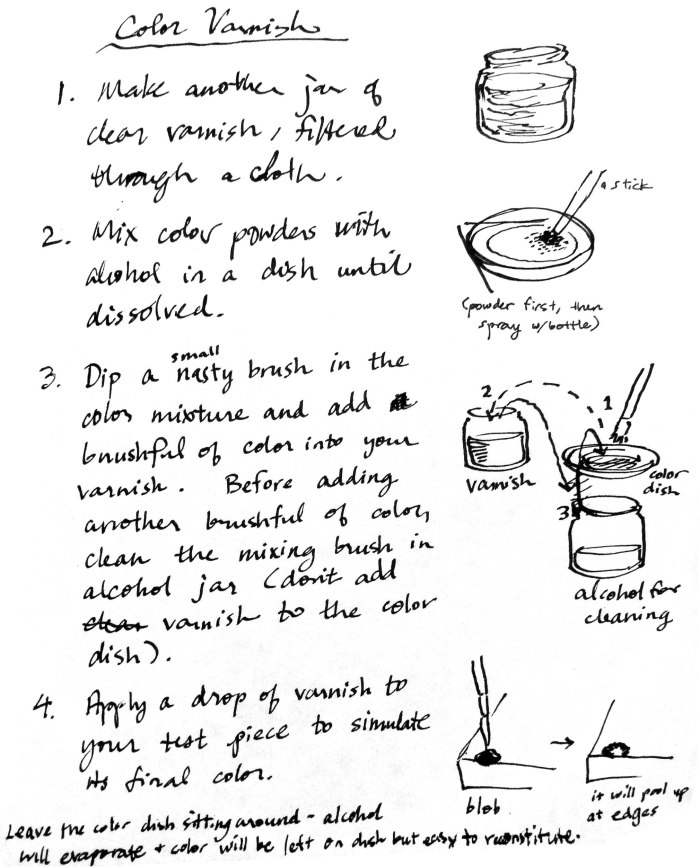 Color Varnish
1. Make another jar of
clear varnish, filtered
through a cloth.
2. Mix color powders with
alcohol in a dish until
dissolved.
a stick
(powder first, then
spray w/bottle)
small
3. Dip a nasty brush in the
color mixture and add a
brushful of color into your
varnish. Before adding
another brushful of color,
clean the mixing brush in
alcohol jar (don't add
clear varnish to the color
dish).
2
1
varnish
color
dish
3
alcohol for
cleaning
4. Apply a drop of varnish to
your test piece to simulate
its final color.
blob
it will pool up
at edges
Leave the color dish sitting around - alcohol
will evaporate + color will be left on dish but easy to reconstitute.